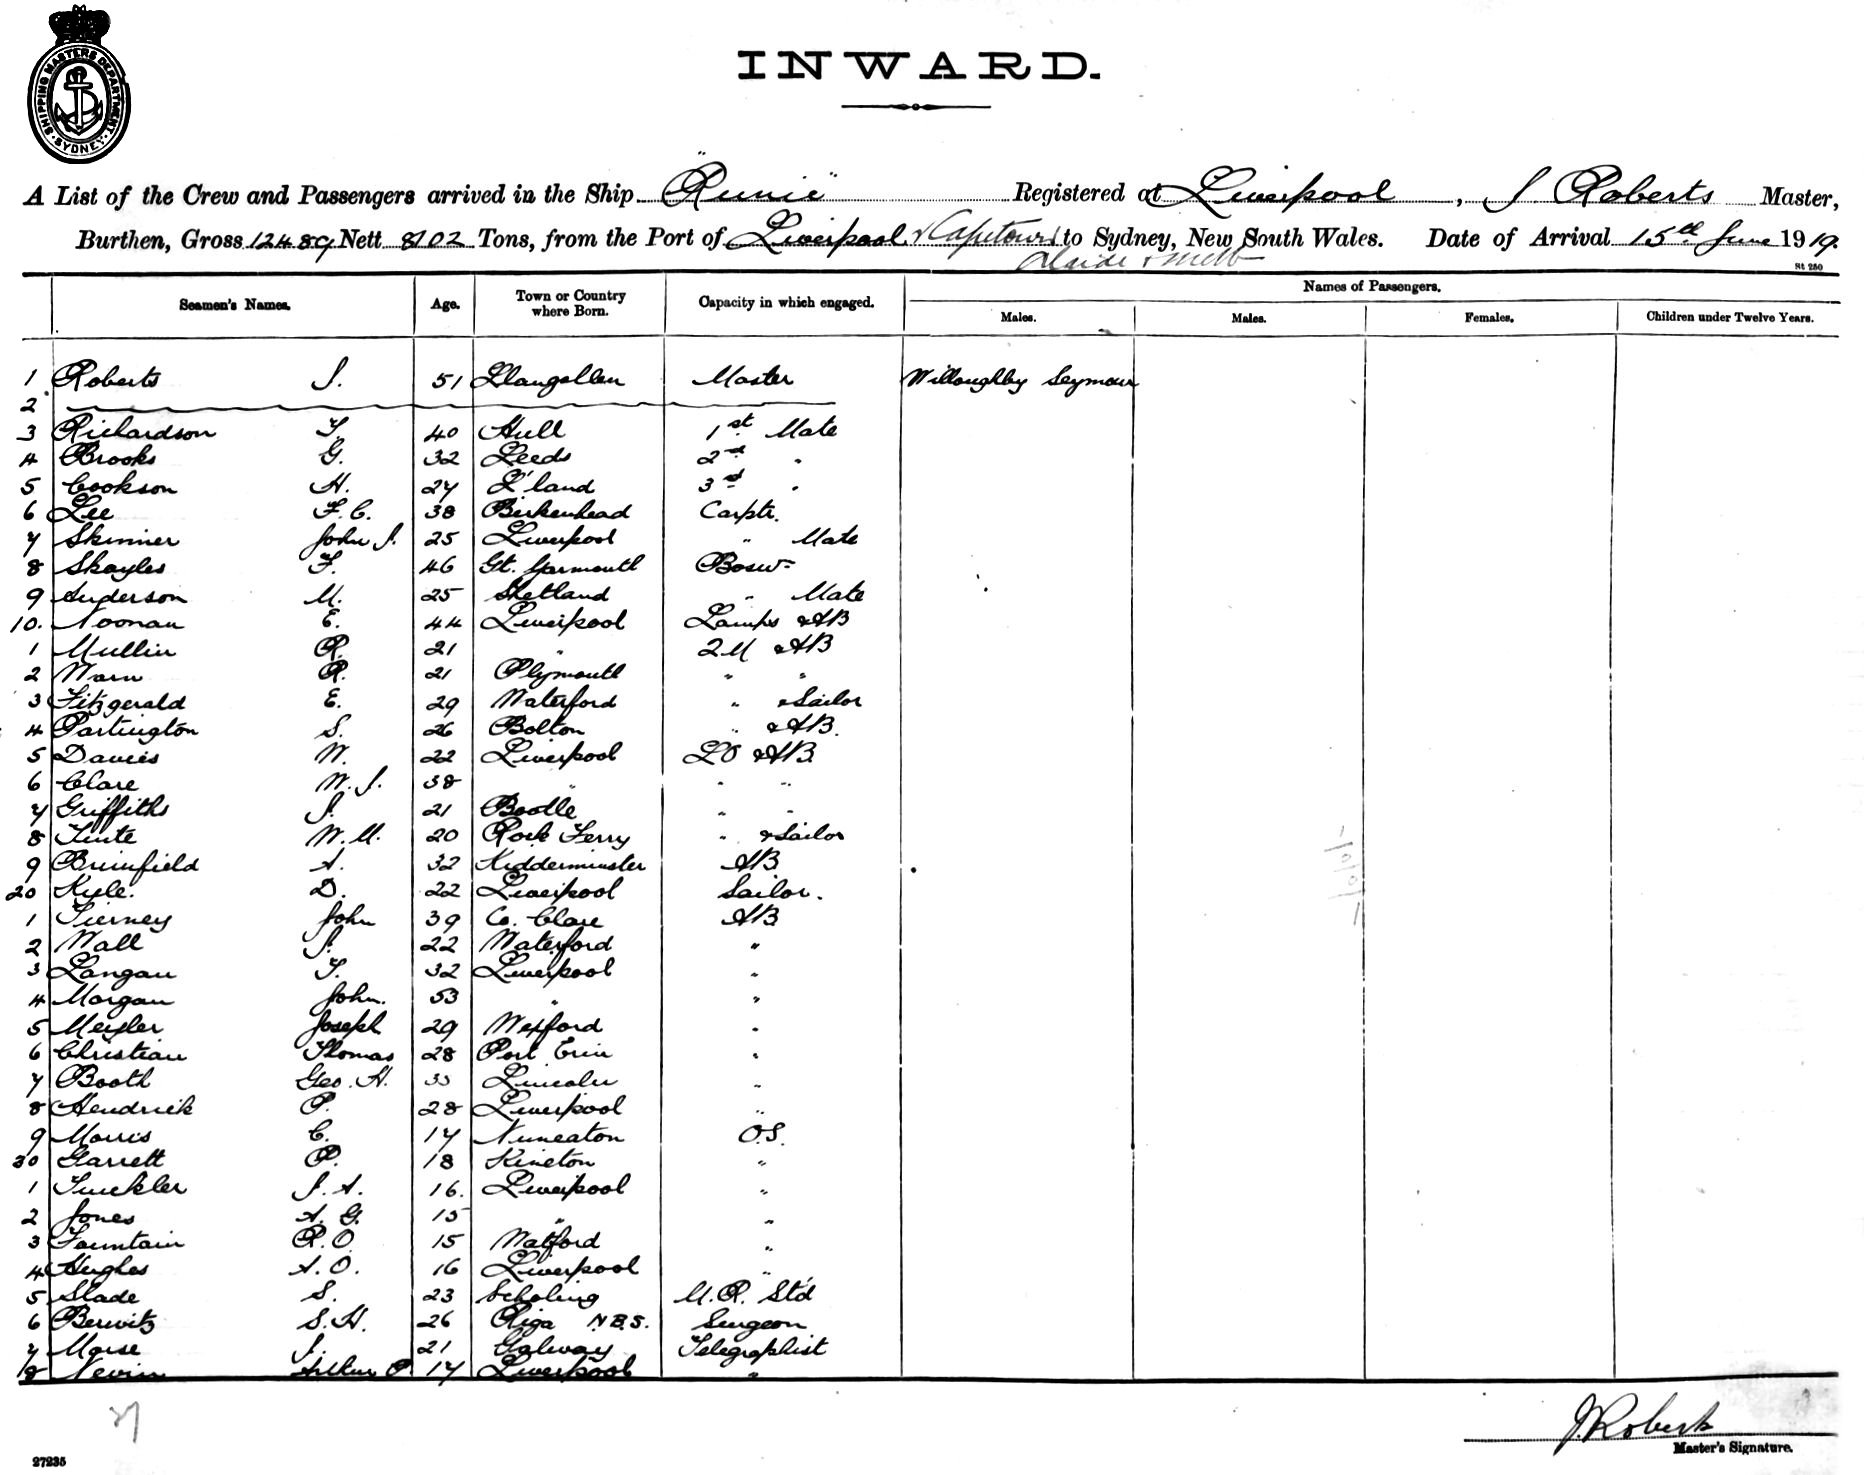 SHIPPING MASTERS DEPARTMENT
SYDNEY
INWARD.
A List of the Crew and Passengers arrived in the Ship "Runic" Registered at Liverpool, J Roberts Master,
Burthen, Gross 12489 Nett 8102 Tons, from the Port of Liverpool & Capetown to Sydney, New South Wales. Date of Arrival 15th June 1919.
St 250
Seamen's Names. Age. Town or Country where Born. Capacity in which engaged. Names of Passengers.
Males. Males. Females. Children under Twelve Years.
1 Roberts J. 51 Llangollen Master Willoughby Seymour
2
3 Richardson T. 40 Hull 1st Mate
4 Brooks G. 32 Leeds 2nd "
5 Cookson H. 27 L'land 3rd "
6 Lee F.C. 38 Birkenhead Carptr.
7 Skinner John J. 25 Liverpool " Mate
8 Skoyles F. 46 Gt. Yarmouth Bosun
9 Anderson M. 25 Shetland " Mate
10. Noonan E. 44 Liverpool Lamps & AB
1 Mullin R. 21 " 2M & AB
2 Warn R. 21 Plymouth " "
3 Fitzgerald E. 29 Waterford " & Sailor
4 Partington S. 26 Bolton " & AB.
5 Davies W. 22 Liverpool LO & AB
6 Clare W.J. 38 " " "
7 Griffiths J. 21 Bootle " "
8 Tuite W.M. 20 Rock Ferry " & Sailor
9 Brimfield A. 32 Kidderminster AB
20 Kyle. D. 22 Liverpool Sailor.
1 Tierney John 39 Co. Clare AB
2 Wall J. 22 Waterford "
3 Langan T. 32 Liverpool "
4 Morgan John. 53 " "
5 Meyler Joseph 29 Wexford "
6 Christian Thomas 28 Port Erin "
7 Booth Geo. H. 33 Lincoln "
8 Hendrick P. 28 Liverpool "
9 Morris C. 17 Nuneaton O.S.
30 Garrett P. 18 Kineton "
1 J.A. 16. Liverpool "
2 Jones A.G. 15 " "
3 Fountain R.O. 15 Watford "
4 Hughes A.O. 16 Liverpool "
5 Slade S. 23 Scholing M.R. Std
6 Berwitz S.H. 26 Riga N.B.S. Surgeon
7 Morse J. 21 Galway Telegraphist
8 Nevin Arthur P. 17 Liverpool "
27
J Roberts
Master's Signature.
27235